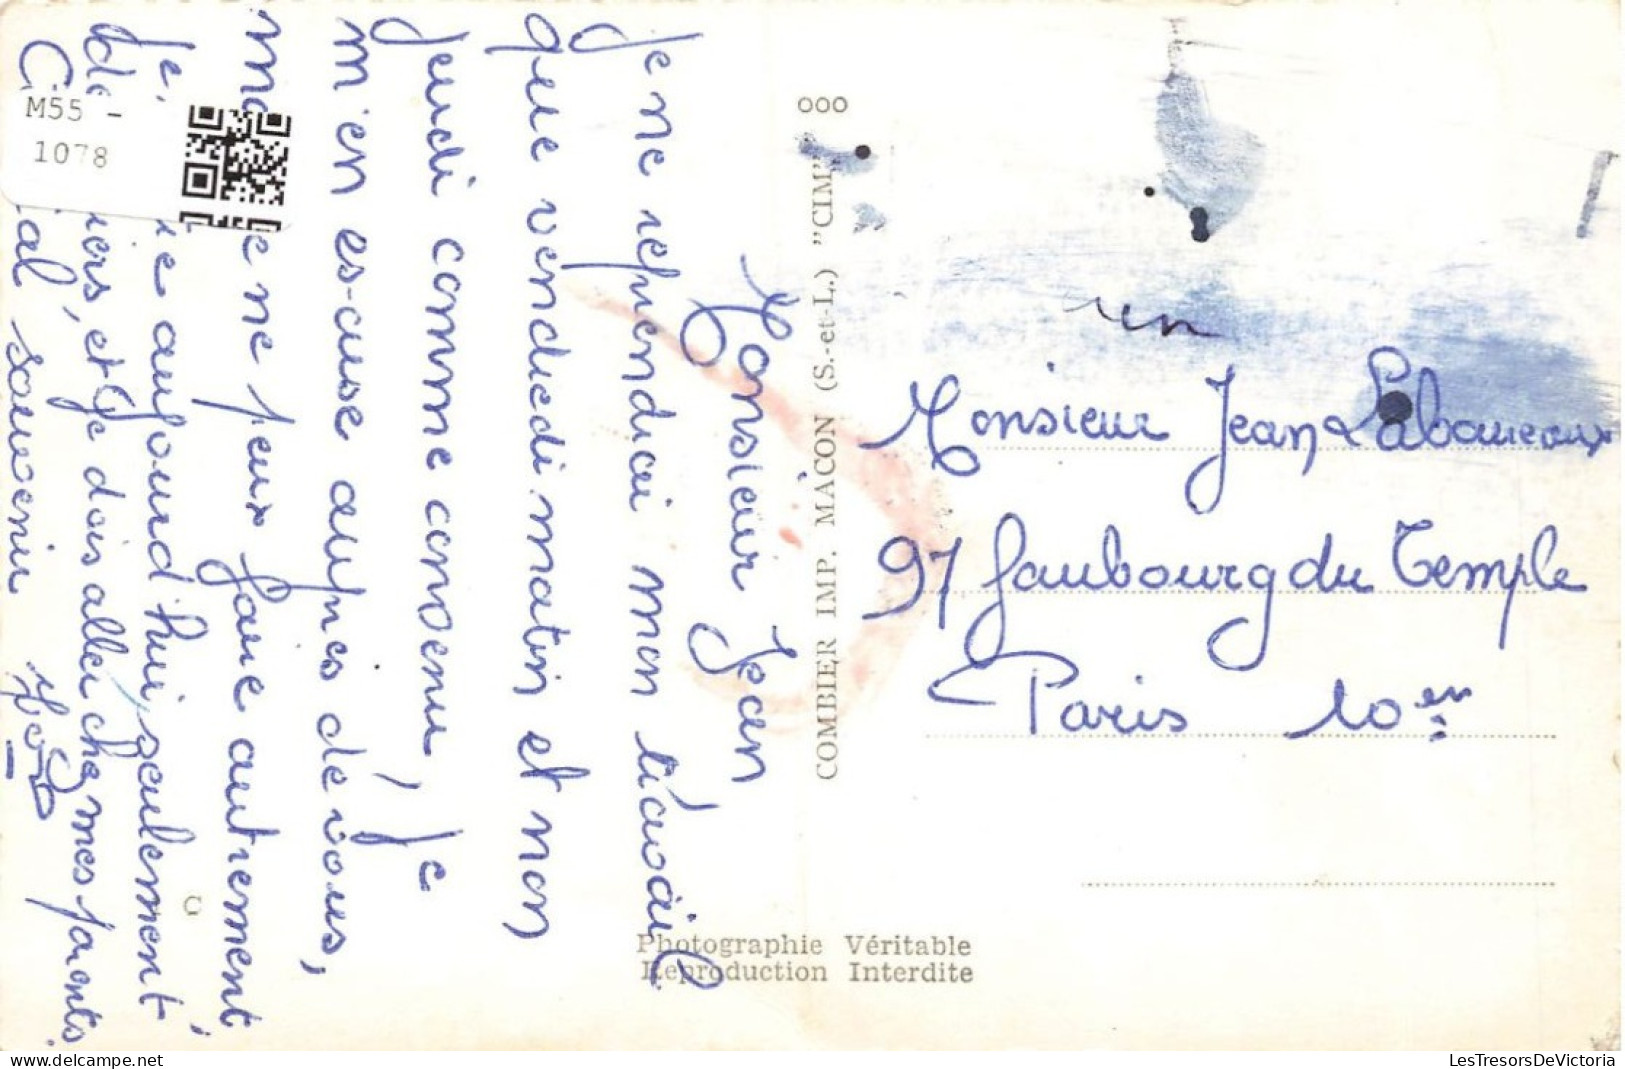 Monsieur Jean
Je ne reprendrai mon travail
que vendredi matin et non
Jeudi comme convenu, je
m'en es-cuse auprès de vous,
ne peux faire autrement
Je aujourd'hui seulement
et je dois aller chez mes parents
souvenir
M55 -
1078
ooo
COMBIER IMP. MACON (S.-et-L.) "CIM"
Monsieur Jean
97 faubourg du Temple
Paris 10em
Photographie Véritable
Reproduction Interdite
LesTresorsDeVictoria